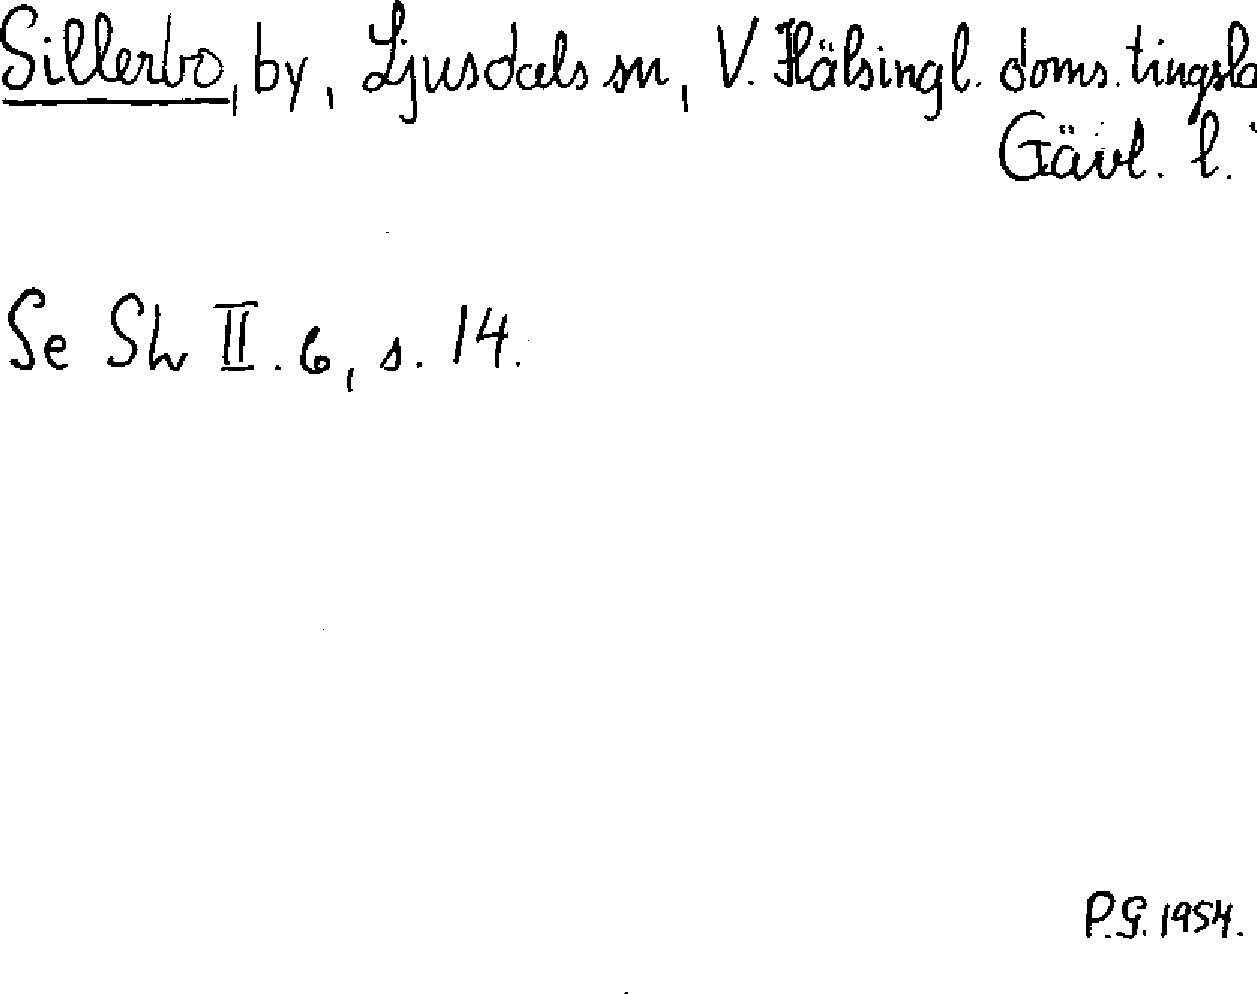 Sillerbo, by, Ljusdals sn, V. Hälsingl. doms. tingsla
Gävl. l.
Se Sh II. 6, s. 14.
P.G. 1954.